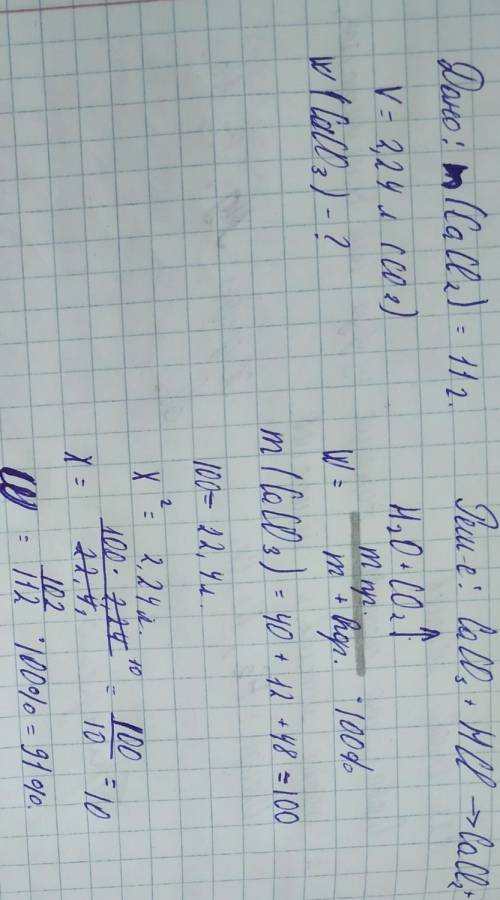 Дано: m (CaCl₂) = 11 г.
V = 2,24 л (CO₂)
W (CaCO₃) - ?
Реш-е: CaCO₃ + HCl → CaCl₂ +
H₂O + CO₂↑
W = m пр. / m + · 100%
m (CaCO₃) = 40 + 12 + 48 = 100
100 = 22,4 л.
X = 2,24 л.
X = 100 · 2,24 / 22,4 = 100 / 10 = 10
W = 102 / 112 · 100% = 91%.